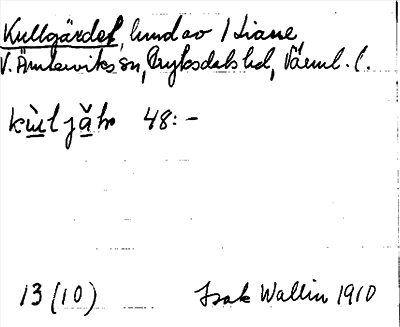 Kullgärdet, hmd av / Liane
V. Ämterviks sn, Fryksdals hd, Värml. l.
kùljǎṭɩ 48:-
13 (10) Isak Wallin 1910